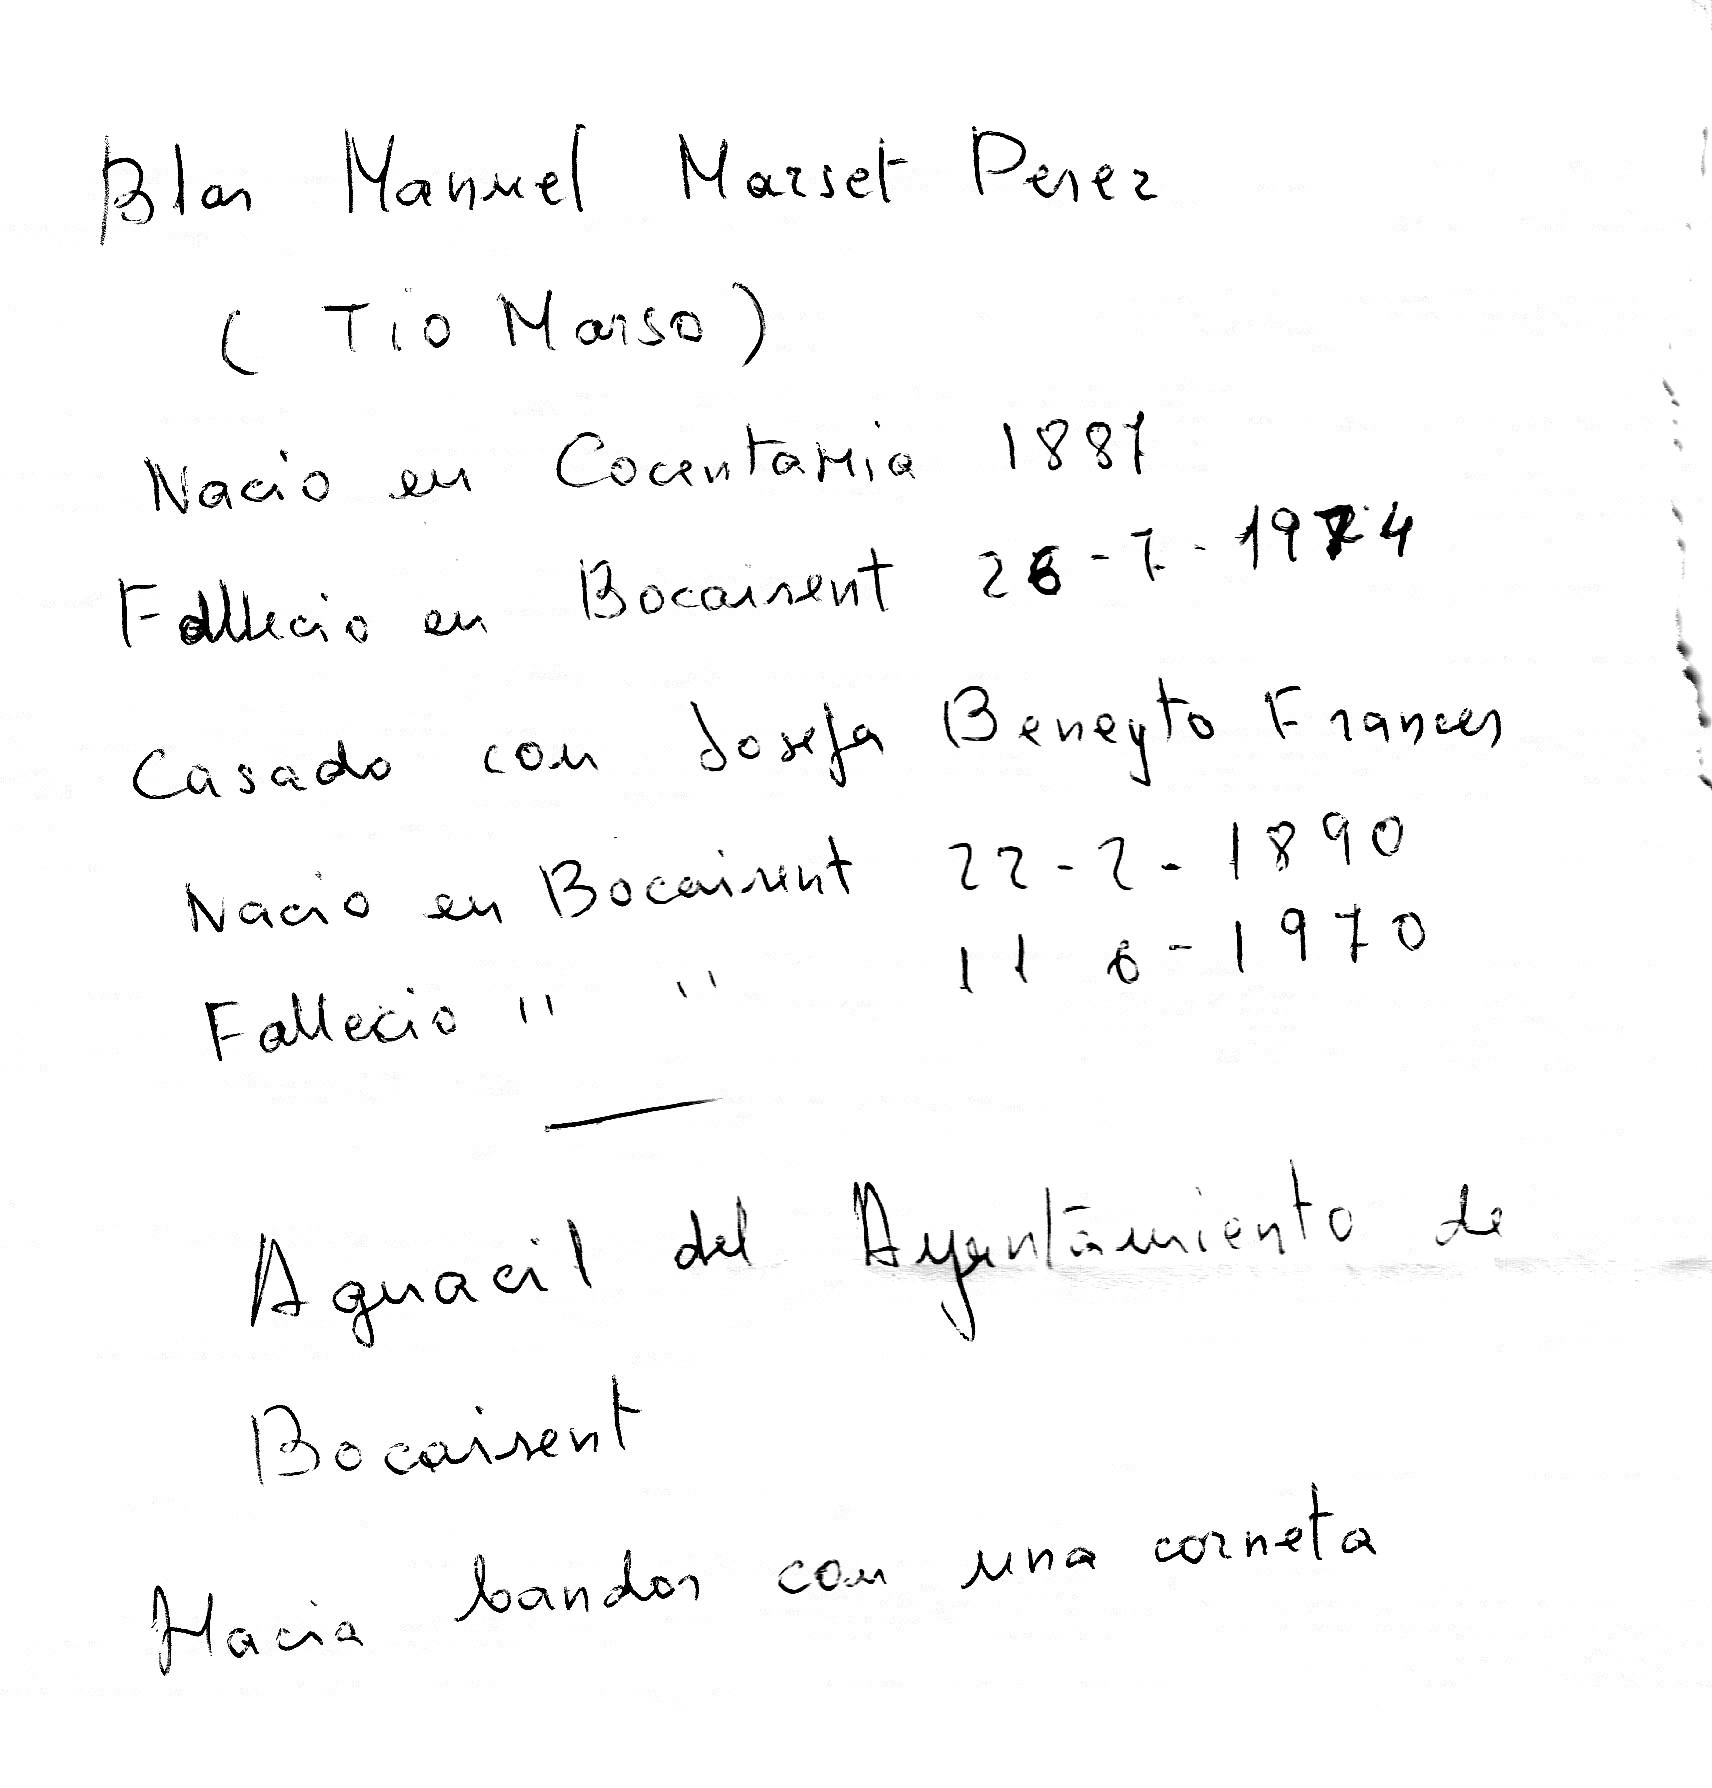 Blas Manuel Marset Perez
(Tio Marso)
Nacio en Cocentania 1887
Fallecio en Bocairent 26-7-1974
Casado con Josefa Beneyto Frances
Nacio en Bocairent 22-2-1890
Fallecio " " 11 6-1970
Aguacil del Ayuntamiento de
Bocairent
Hacia bandos con una corneta